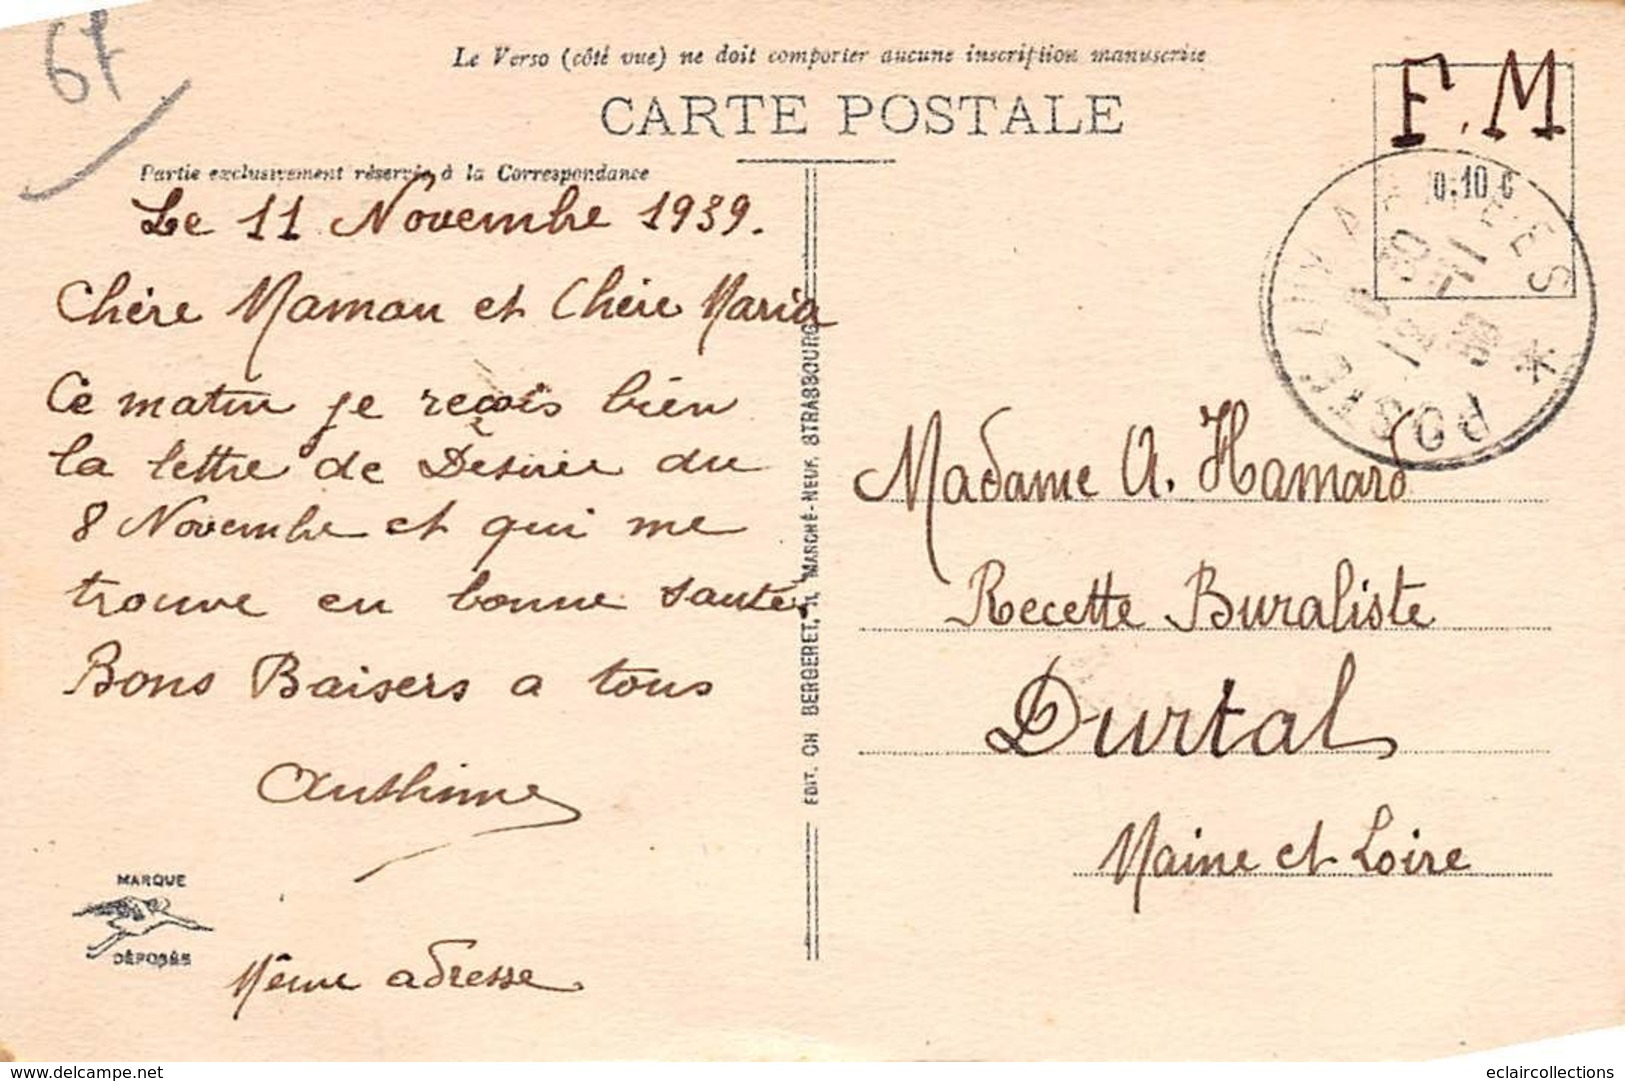 67
Le Verso (côté vue) ne doit comporter aucune inscription manuscrite
CARTE POSTALE
F.M
0.10 c
Partie exclusivement réservée à la Correspondance
Le 11 Novembre 1939.
Chère Maman et Chère Maria
Ce matin je reçois bien
la lettre de Désirée du
8 Novembre et qui me
trouve en bonne santé.
Bons Baisers a tous
Même adresse
MARQUE
DÉPOSÉE
EDIT. CH BERGERET, MARCHÉ-NEUF, STRASBOURG
POSTE AUX ARMÉES *
Madame A. Hamard
Recette Buraliste
Durtal
Maine et Loire
www.delcampe.net
eclaircollections